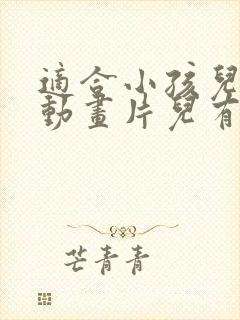 適合小孩兒
動畫片兒有
芒青青